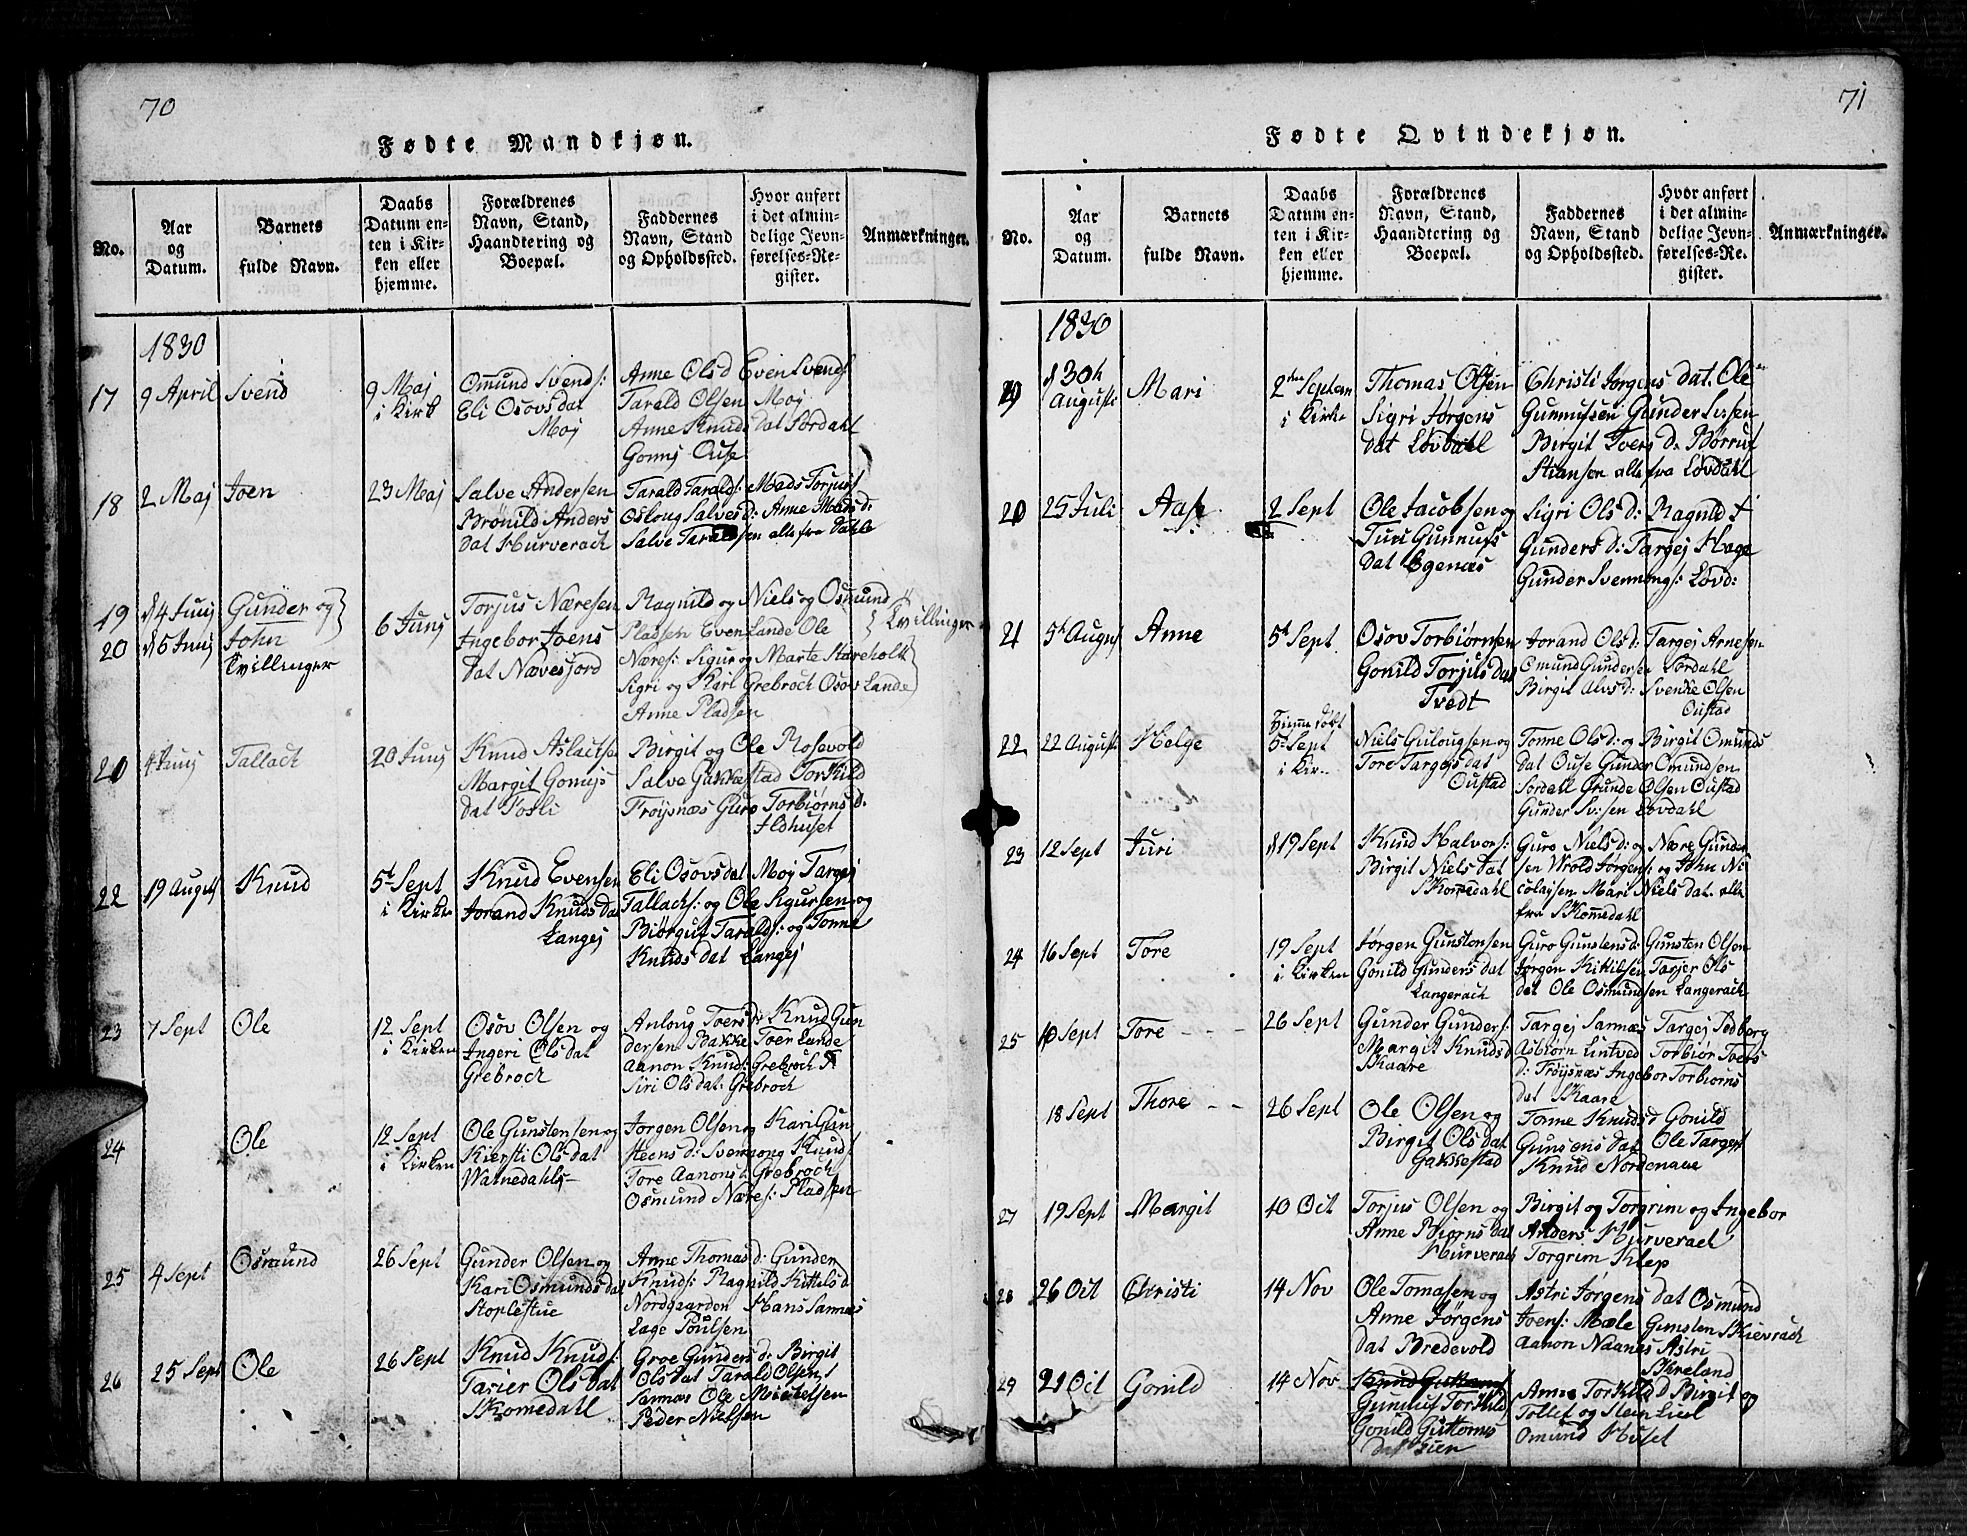 70
Fødte Mandkjøn.
No.
Aar
og
Datum.
Barnets
fulde Navn.
Daabs
Datum en-
ten i Kir-
ken eller
hjemme.
Forældrenes
Navn, Stand,
Haandtering og
Boepæl.
Faddernes
Navn, Stand
og Opholdssted.
Hvor anført
i det almin-
delige Jevn-
førelses-Re-
gister.
Anmærkninger.
1830
17
9 April
Svend
9 Maj
i Kirk
Omund Svends:
Eli Osovsdat
Moj
Anne Olsd Even Svends:
Tarald Olsen Moj
Anne Knudsdat Sordahl
Gonnj Ouse
18
2 Maj
Joen
23 Maj
Salve Andersen
Brönild Anders
dat Hurverach
Tarald Taralds: Mads Torjus
Osloug Salvesd: Anne Madsd:
Salve Taraldsen alle fra Dahle
19
20
d 4 Junj
d 5 Junj
Gunder og
John
tvillinger
6 Junj
Torjus Næresen
Ingebor Joens
dat Nævesjord
Ragnild og Niels og Osmund
Pladsen Even Lande Ole
Næres: Sigur og Marte Stareholt
Sigri og Kari Grebroch Osov Lande
Anne Pladsen
tvillinger
20
4 Junj
Tallach
20 Junj
Knud Aslachse
Margit Gonujs
dat Fosli
Birgit og Ole Rosevold
Salve Gakkestad Torkild
Frøysnæs Guro Torbiørnsd:
Ildhuset
22
19 August
Knud
5t Sept
i Kirke
Knud Evensen
Jorand Knudsdat
Langej
Eli Osovsdat Moj Targej
Tallachs: og Ole Sigursen og
Biørguf Taralds: og Tonne
Knudsdat Langej
23
7 Sept
Ole
12 Sept
i Kirken
Osov Olsen og
Ingeri Olsdat
Grebroch
Anloug Toersd: Knud Gun
dersen Bakke Toer Lande
Aanon Knuds: Grebroch
Siri Olsdat: Grebroch
24
Ole
12 Sept
i Kirken
Ole Gunstensen og
Kiersti Olsdat
Wamedahls
Jørgen Olsen og Kari Gun
steens d: Svenning Knuds:
Tore Aanons: Grebroch
Osmund Næres: Pladsen
25
4 Sept
Osmund
26 Sept
Gunder Olsen og
Kari Osmundsdat
Stoplestue
Anne Thomasd: Gunder
Knuds: Ragnild Kittelsd
Nordgaarden Hans Sannæs
Lage Poulsen
26
25 Sept
Ole
26 Sept
Knud Knuds:
Tarier Olsdat
SKomedahl
Groe Gundersd: Birgit
Olsdat Tarald Olsen
Sannæs Ole Michelsen
Peder Nielsen
71
Fødte Qvindekjøn.
No.
Aar
og
Datum.
Barnets
fulde Navn.
Daabs
Datum en-
ten i Kir-
ken eller
hjemme.
Forældrenes
Navn, Stand,
Haandtering og
Boepæl.
Faddernes
Navn, Stand
og Opholdssted.
Hvor anført
i det almin-
delige Jevn-
førelses-Re-
gister.
Anmærkninger.
1830
19
d 30th
August
Mari
2den Septem
i Kirke
Thomas Olsen
Sigri Jørgens
dat Løvdal
Christi Jørgens dat. Ole
Gunnufsen Gunder Sv:sen
Birgit Ivers d. Børruf
Stiansen alle fra Løvdahl
20
25 Juli
Aase
2 Sept
Ole Jacobsen og
Turi Gunnufs
dat Egenæs
Sigri Ols d: Ragnild
Gunders d: Targej Hage
Gunder Svennings: Løvd:
21
5t August
Anne
5t Sept
Osov Torbiørnsen
Gonild Torjusdat
Tvedt
Jorand Olsd: Targej Arnesen
Omund Gundersen Sordahl
Birgit Alvsd: Svenke Olsen
Oustad
22
22 August
Helge
Hjemme døbt
5t Sept
i Kir..
Niels Gulougsen og
Tore Targejsdat
Oustad
Tonne Olsd: og Birgit Omunds
dat Ouse Gunder Omundsen
Sordahl Grunde Olsen Oustad
Gunder Sv:sen Løvdahl
23
12 Sept
Turi
d 19 Sept
Knud Halvors:
Birgit Niels dat
SKomedahl
Guro Nielsd: og Nære Gunder
sen Wrold Jørgens: og John Ni
colajsen Mari Niels dat. alle
fra SKomedahl
24
16 Sept
Tore
19 Sept
i Kirken
Jørgen Gunstensen
Gonild Gundersdat
Langerach
Guro Gunstensd: Gunsten Olsen
Jørgen Kittilsen Tarjer Ols
dat Ole Osmundsen Langerach
25
10 Sept
Tore
26 Sept
Gunder Gunders:
Margit Knudsd
SKaare
Targej Sannæs Targej Sedberg
Asbiørn Lintved Torbiør Tvers
d: Frøysnæs Ingebor Torbiørns
dat SKaare
18 Sept
Thore
26 Sept
Ole Olsen og
Birgit Olsdat
Gakkestad
Tonne Knudsd Gonild
Gunsensdat Ole Targej
Knud Nordenaae
27
19 Sept
Margit
10 Oct
Torjus Olsen og
Anne Biørns dat
Hurverach
Birgit og Torgrim og Ingebor
Anders Hurverach
Torgrim Klep
28
26 Oct
Christi
14 Nov
Ole Tomasen og
Anne Jørgens
dat Bredevold
Astri Jørgens dat Osmund
Joens: Mæle Gunsten SKievrach
Aanon Naanes Astri
SKreland
29
21 Oct
Gonild
14 Nov
Gunuf Torkild
Gonild Guttorms
dat Lien
Anne Torkildd Birgit og
Tollef og Stein Liel
Omund Huset